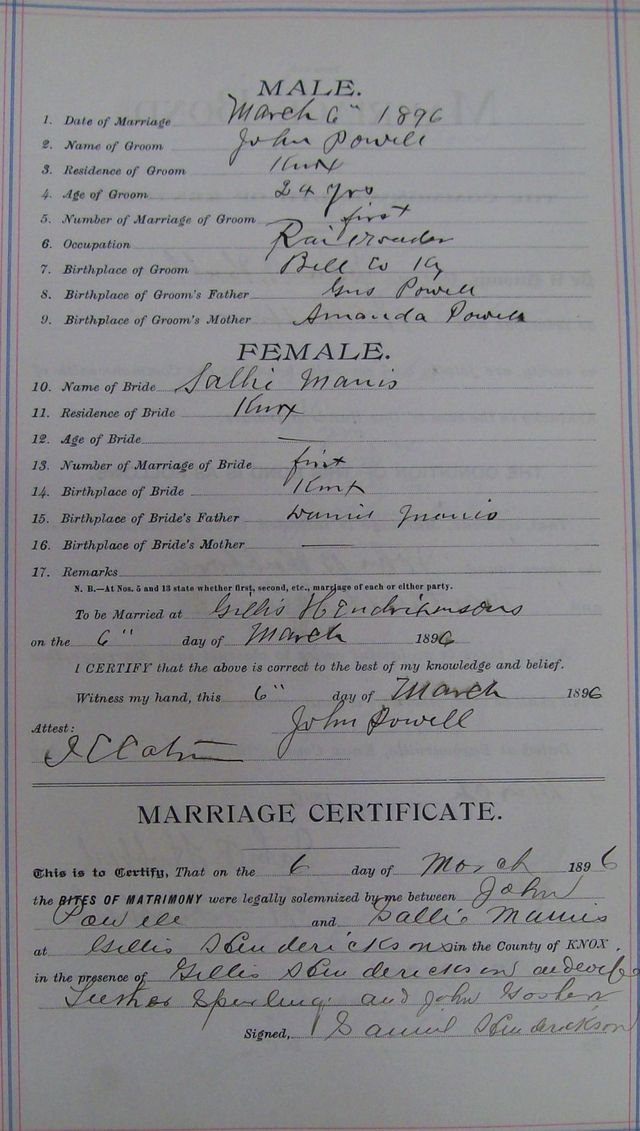 MALE.
1. Date of Marriage March 6" 1896
2. Name of Groom John Powell
3. Residence of Groom Knox
4. Age of Groom 24 yrs
5. Number of Marriage of Groom first
6. Occupation Railroader
7. Birthplace of Groom Bell Co Ky
8. Birthplace of Groom's Father Gus Powell
9. Birthplace of Groom's Mother Amanda Powell
FEMALE.
10. Name of Bride Sallie Manis
11. Residence of Bride Knox
12. Age of Bride —
13. Number of Marriage of Bride first
14. Birthplace of Bride Knox
15. Birthplace of Bride's Father Manis
16. Birthplace of Bride's Mother —
17. Remarks
N. B.—At Nos. 5 and 13 state whether first, second, etc., marriage of each or either party.
To be Married at Gillis
on the 6" day of March 1896
I CERTIFY that the above is correct to the best of my knowledge and belief.
Witness my hand, this 6" day of March 1896
John Powell
Attest:
MARRIAGE CERTIFICATE.
This is to Certify, That on the 6 day of March 1896
the RITES OF MATRIMONY were legally solemnized by me between John
Powell and Sallie Mannis
at Gillis Hendericksons in the County of KNOX,
in the presence of Gillis Henderickson and wife
and John
Signed, Henderickson